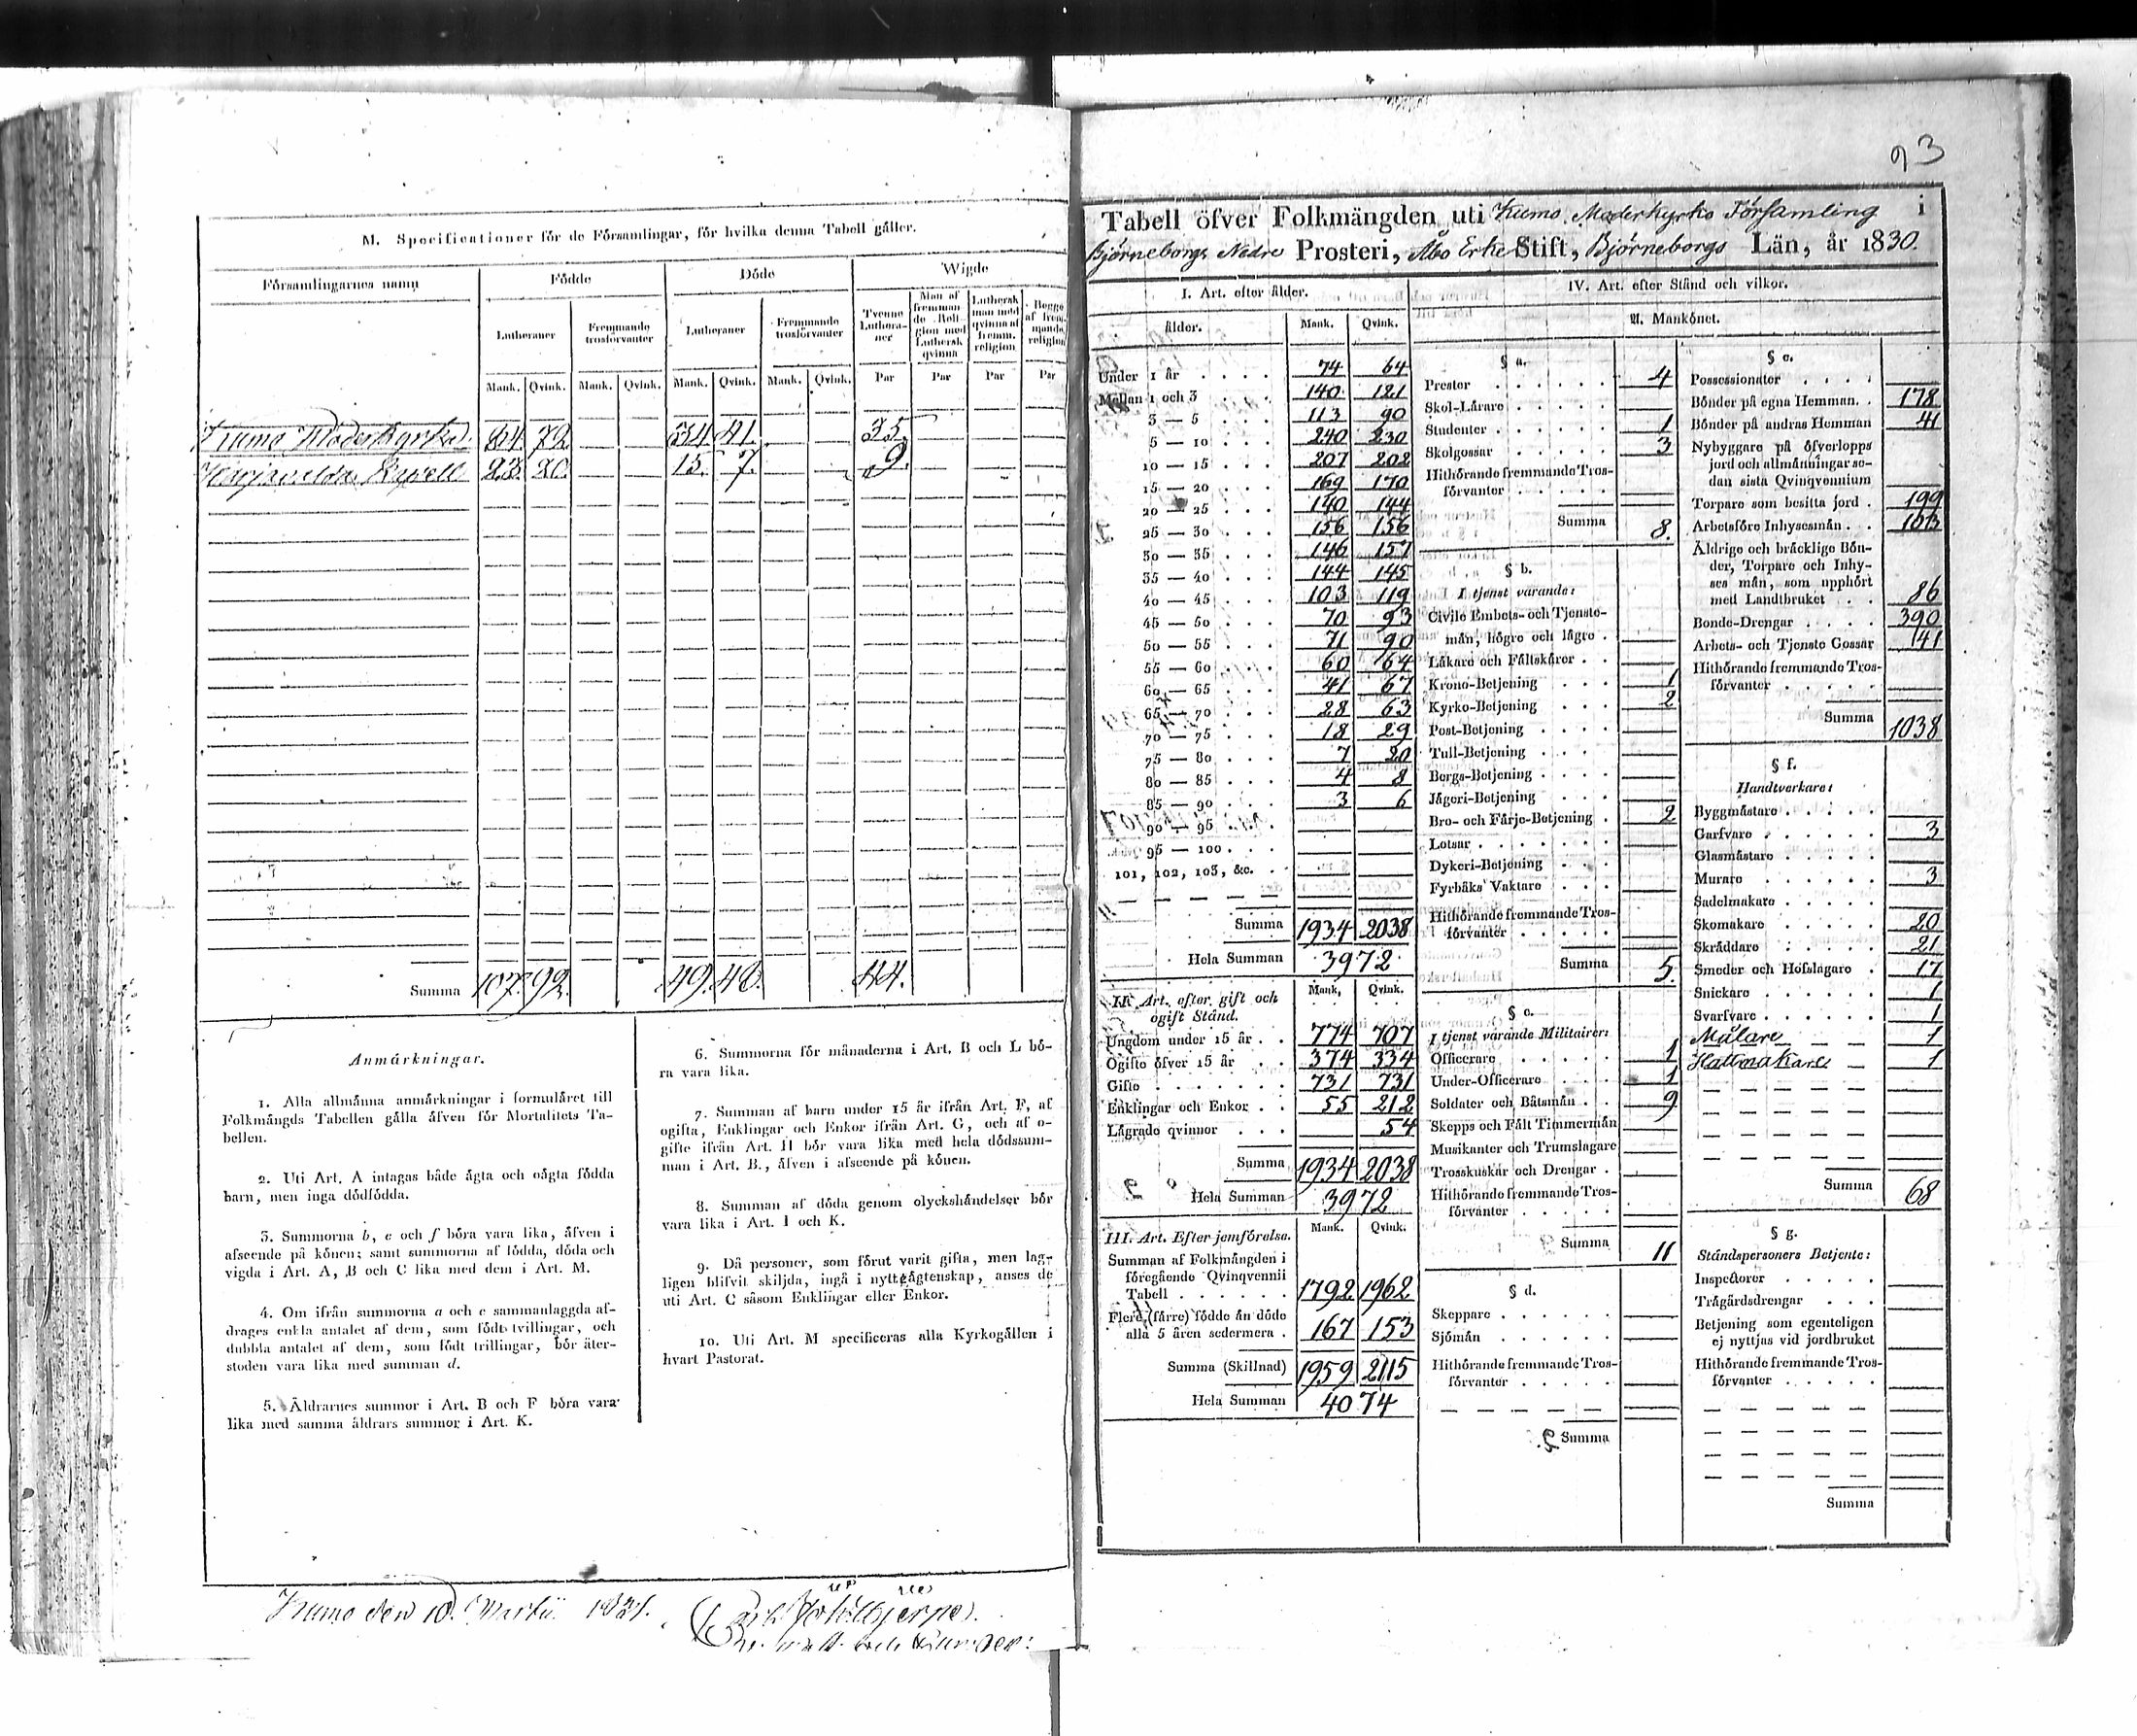 M. Specificationer för de Församlingar, för hvilka denna Tabell gäller.
Församlingarnes namn
Födde
Döde
Wigde
Lutheraner
Fremmande trosförvanter
Lutheraner
Fremmande trosförvanter
Tvenne Lutheraner
Man af fremmande Religion med Luthersk qvinna
Luthersk man med qvinna af fremm. religion
Begge af fremmande religion
Mank. Qvink. Mank. Qvink. Mank. Qvink. Mank. Qvink. Par Par Par Par
Kumo Moderkyrka. 84 72 34 41. 35.
Kapell 23. 20. 15. 7. 9.
Summa 107. 92. 49. 48. 44.
Anmärkningar.
1. Alla allmänna anmärkningar i formuläret till
Folkmängds Tabellen gälla äfven för Mortalitets Ta-
bellen.
2. Uti Art. A intagas både ägta och oägta födda
barn, men inga dödfödda.
3. Summorna b, e och f böra vara lika, äfven i
afseende på könen; samt summorna af födda, döda och
vigda i Art. A, B och C lika med dem i Art. M.
4. Om ifrån summorna a och c sammanlagda af-
drages enkla antalet af dem, som födt tvillingar, och
dubbla antalet af dem, som födt trillingar, bör åter-
stoden vara lika med summan d.
5. Äldrarnes summor i Art. B och F böra vara
lika med samma äldrars summor i Art. K.
6. Summorna för månaderna i Art. B och L bö-
ra vara lika.
7. Summan af barn under 15 år ifrån Art. F, af
ogifta, Enklingar och Enkor ifrån Art. G, och af o-
gifte ifrån Art. H bör vara lika med hela dödssum-
man i Art. B., äfven i afseende på könen.
8. Summan af döda genom olyckshändelser bör
vara lika i Art. I och K.
9. Då personer, som förut varit gifta, men lag-
ligen blifvit skiljda, ingå i nytt ägtenskap, anses de
uti Art. C såsom Enklingar eller Enkor.
10. Uti Art. M specificeras alla Kyrkogällen i
hvart Pastorat.
Kumo den 10. Martii 1831.
93
Tabell öfver Folkmängden uti Kumo Moderkyrko Församling i
Björneborgs Nedre Prosteri, Åbo Erke Stift, Björneborgs Län, år 1830.
I. Art. efter ålder.
ålder. Mank. Qvink.
Under 1 år 74 64
Mellan 1 och 3 140 121
3 — 5 113 90
5 — 10 240 230
10 — 15 207 202
15 — 20 169 170
20 — 25 140 144
25 — 30 156 156
30 — 35 146 157
35 — 40 144 145
40 — 45 103 119
45 — 50 70 93
50 — 55 71 90
55 — 60 60 64
60 — 65 41 67
65 — 70 28 63
70 — 75 18 29
75 — 80 7 20
80 — 85 4 8
85 — 90 3 6
90 — 95
95 — 100
101, 102, 103, &c.
Summa 1934 2038
Hela Summan 3972
II. Art. efter gift och ogift Stånd. Mank. Qvink.
Ungdom under 15 år 774 707
Ogifte öfver 15 år 374 334
Gifte 731 731
Enklingar och Enkor 55 212
Lägrade qvinnor 54
Summa 1934 2038
Hela Summan 3972
III. Art. Efter jemförelse. Mank. Qvink.
Summan af Folkmängden i
föregående Qvinqvennii
Tabell 1792 1962
Flere (färre) födde än döde
alla 5 åren sedermera 167 153
Summa (Skillnad) 1959 2115
Hela Summan 4074
IV. Art. efter Stånd och vilkor.
A. Mankönet.
§ a.
Prester 4
Skol-Lärare
Studenter 1
Skolgossar 3
Hithörande fremmande Tros-
förvanter
Summa 8.
§ b.
I tjenst varande:
Civile Embets- och Tjenste-
män, högre och lägre
Läkare och Fältskärer
Krono-Betjening 1
Kyrko-Betjening 2
Post-Betjening
Tull-Betjening
Bergs-Betjening
Jägeri-Betjening
Bro- och Färje-Betjening 2
Lotsar
Dykeri-Betjening
Fyrbåks Vaktare
Hithörande fremmande Tros-
förvanter
Summa 5.
§ c.
I tjenst varande Militairer:
Officerare 1
Under-Officerare 1
Soldater och Båtsmän 9
Skepps och Fält Timmermän
Musikanter och Trumslagare
Trosskuskar och Drengar
Hithörande fremmande Tros-
förvanter
Summa 11
§ d.
Skeppare
Sjömän
Hithörande fremmande Tros-
förvanter
Summa
§ e.
Possessionater
Bönder på egna Hemman 178
Bönder på andras Hemman 41
Nybyggare på öfverlopps
jord och allmänningar se-
dan sista Qvinqvennium
Torpare som besitta jord 199
Arbetsföre Inhysesmän 103
Äldrige och bräcklige Bön-
der, Torpare och Inhy-
ses män, som upphört
med Landtbruket 86
Bonde-Drengar 390
Arbets- och Tjenste Gossar 41
Hithörande fremmande Tros-
förvanter
Summa 1038
§ f.
Handtverkare:
Byggmästare
Garfvare 3
Glasmästare
Murare 3
Sadelmakare
Skomakare 20
Skräddare 21
Smeder och Hofslagare 17
Snickare 1
Svarfvare 1
Målare 1
Hattmakare 1
Summa 68
§ g.
Ståndspersoners Betjente:
Inspectorer
Trägårdsdrengar
Betjening som egenteligen
ej nyttjas vid jordbruket
Hithörande fremmande Tros-
förvanter
Summa